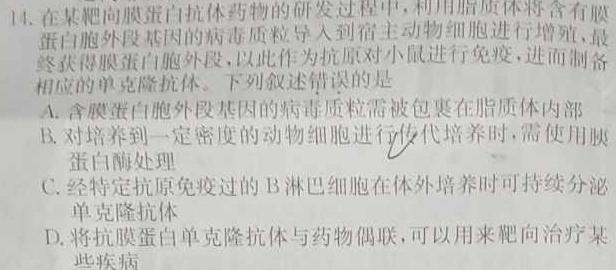 14. 在某靶向膜蛋白抗体药物的研发过程中,利用脂质体将含有膜
蛋白胞外段基因的病毒质粒导入到宿主动物细胞进行增殖,最
终获得膜蛋白胞外段,以此作为抗原对小鼠进行免疫,进而制备
相应的单克隆抗体。下列叙述错误的是
A. 含膜蛋白胞外段基因的病毒质粒需被包裹在脂质体内部
B. 对培养到一定密度的动物细胞进行传代培养时,需使用胰
蛋白酶处理
C. 经特定抗原免疫过的 B 淋巴细胞在体外培养时可持续分泌
单克隆抗体
D. 将抗膜蛋白单克隆抗体与药物偶联,可以用来靶向治疗某
些疾病